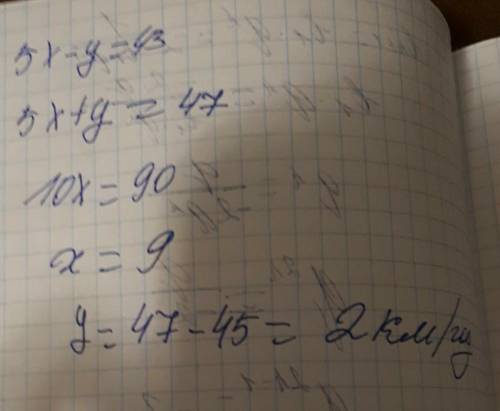 5x-y=43
5x+y=47
10x=90
x=9
y=47-45=2км/